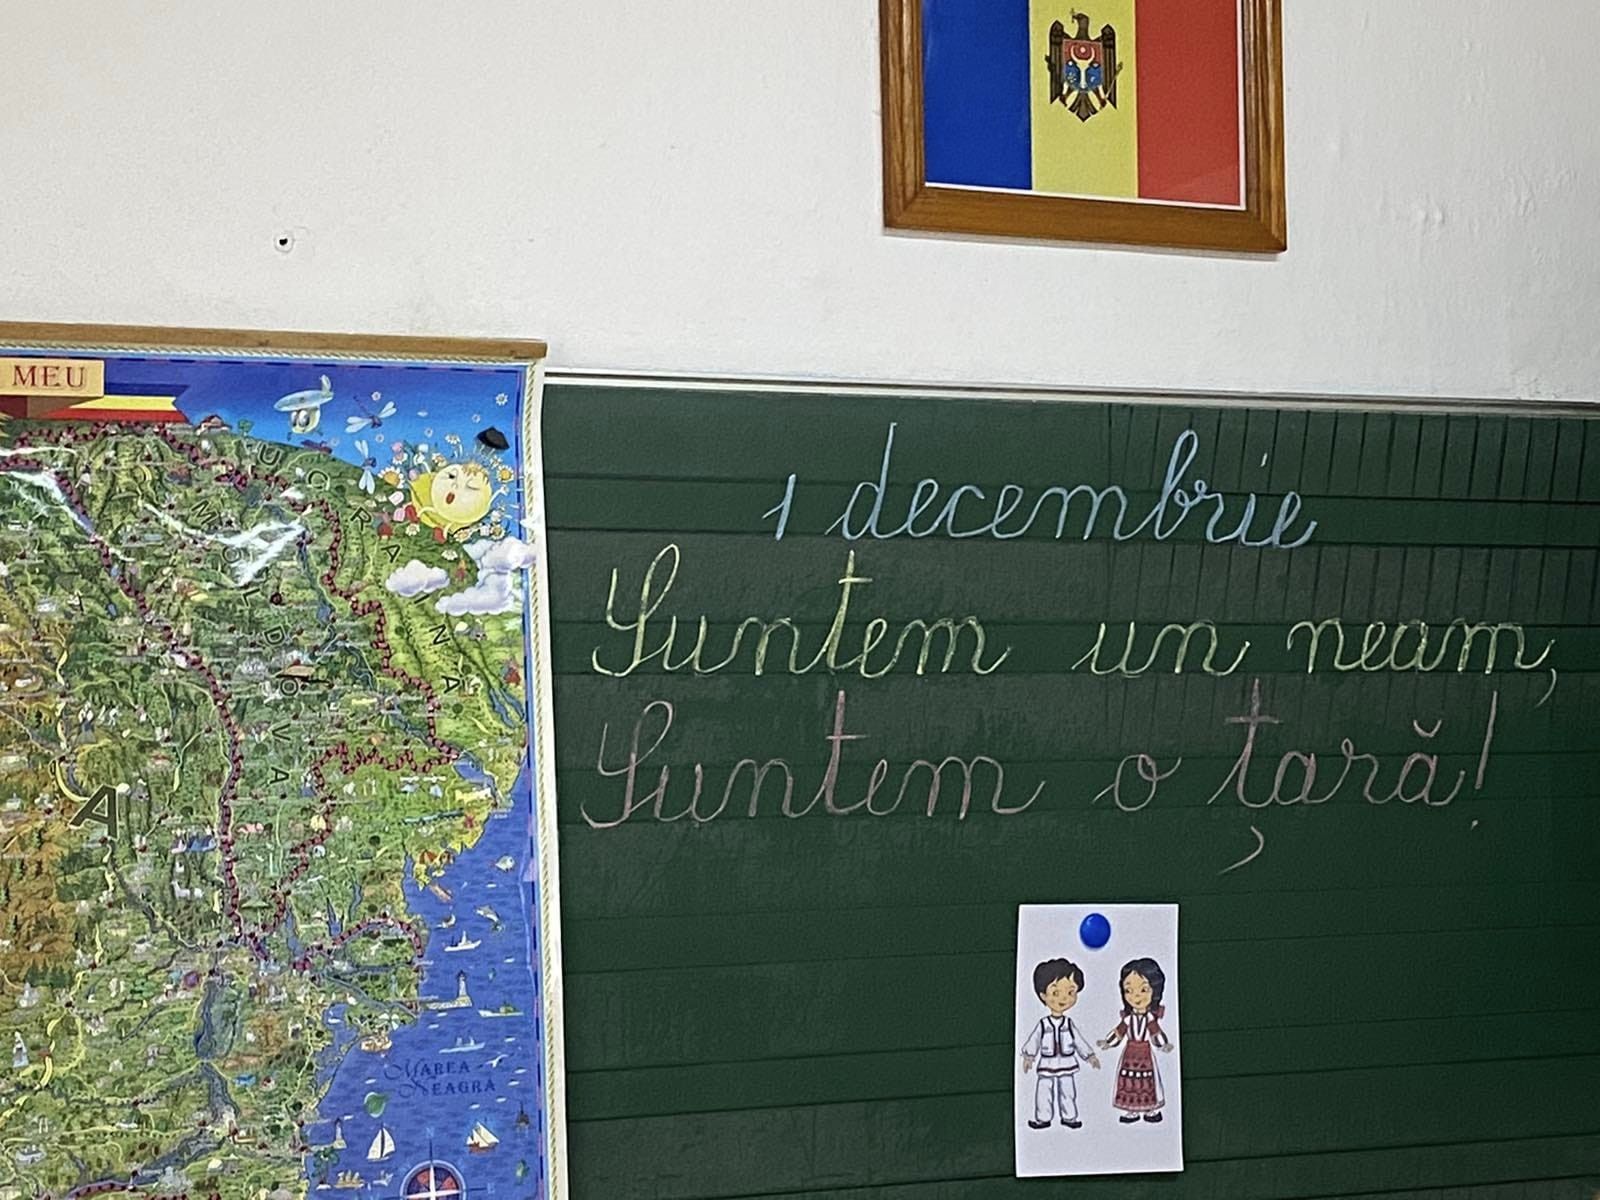 MEU
UCRAINA
MOLDOVA
A
MAREA
NEAGRĂ
1 decembrie
Suntem un neam,
Suntem o țară!